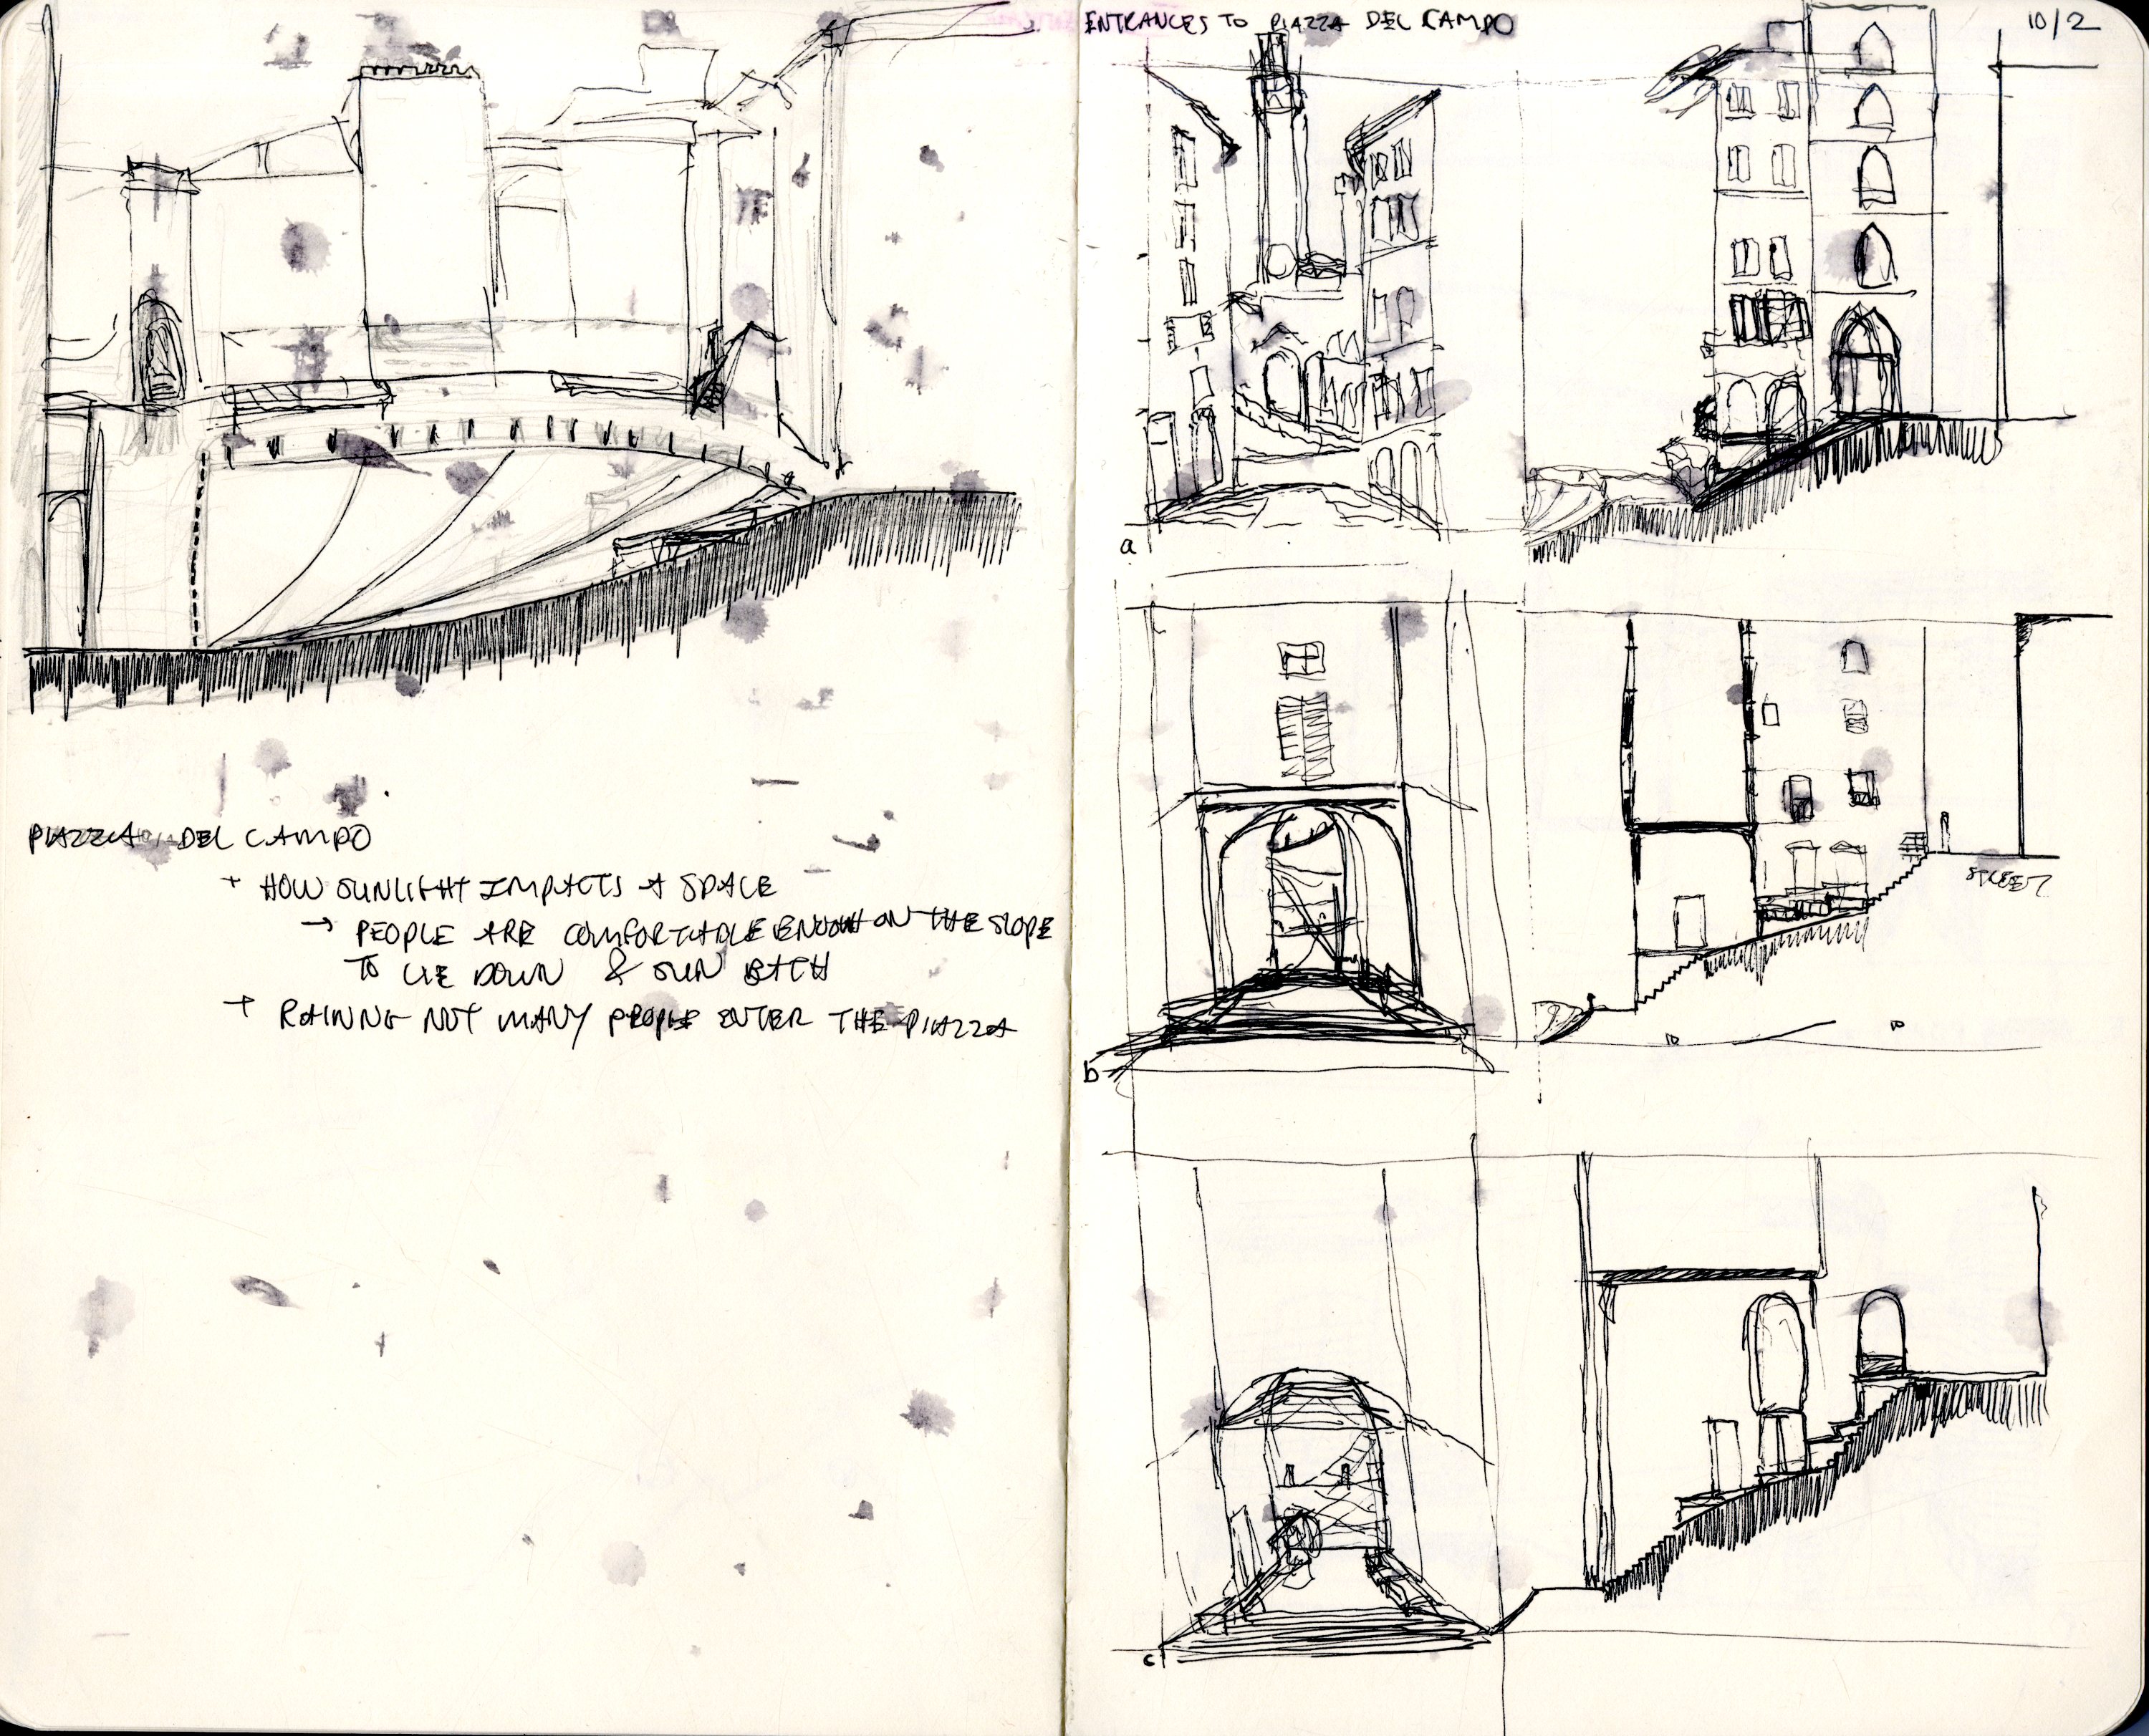 PIAZZA DEL CAMPO
+ HOW SUNLIGHT IMPACTS A SPACE
→ PEOPLE ARE COMFORTABLE ENOUGH ON THE SLOPE
TO LIE DOWN & SUN BATH
+ RAINING NOT MANY PEOPLE ENTER THE PIAZZA
ENTRANCES TO PIAZZA DEL CAMPO
10/2
a
b
STREET
c